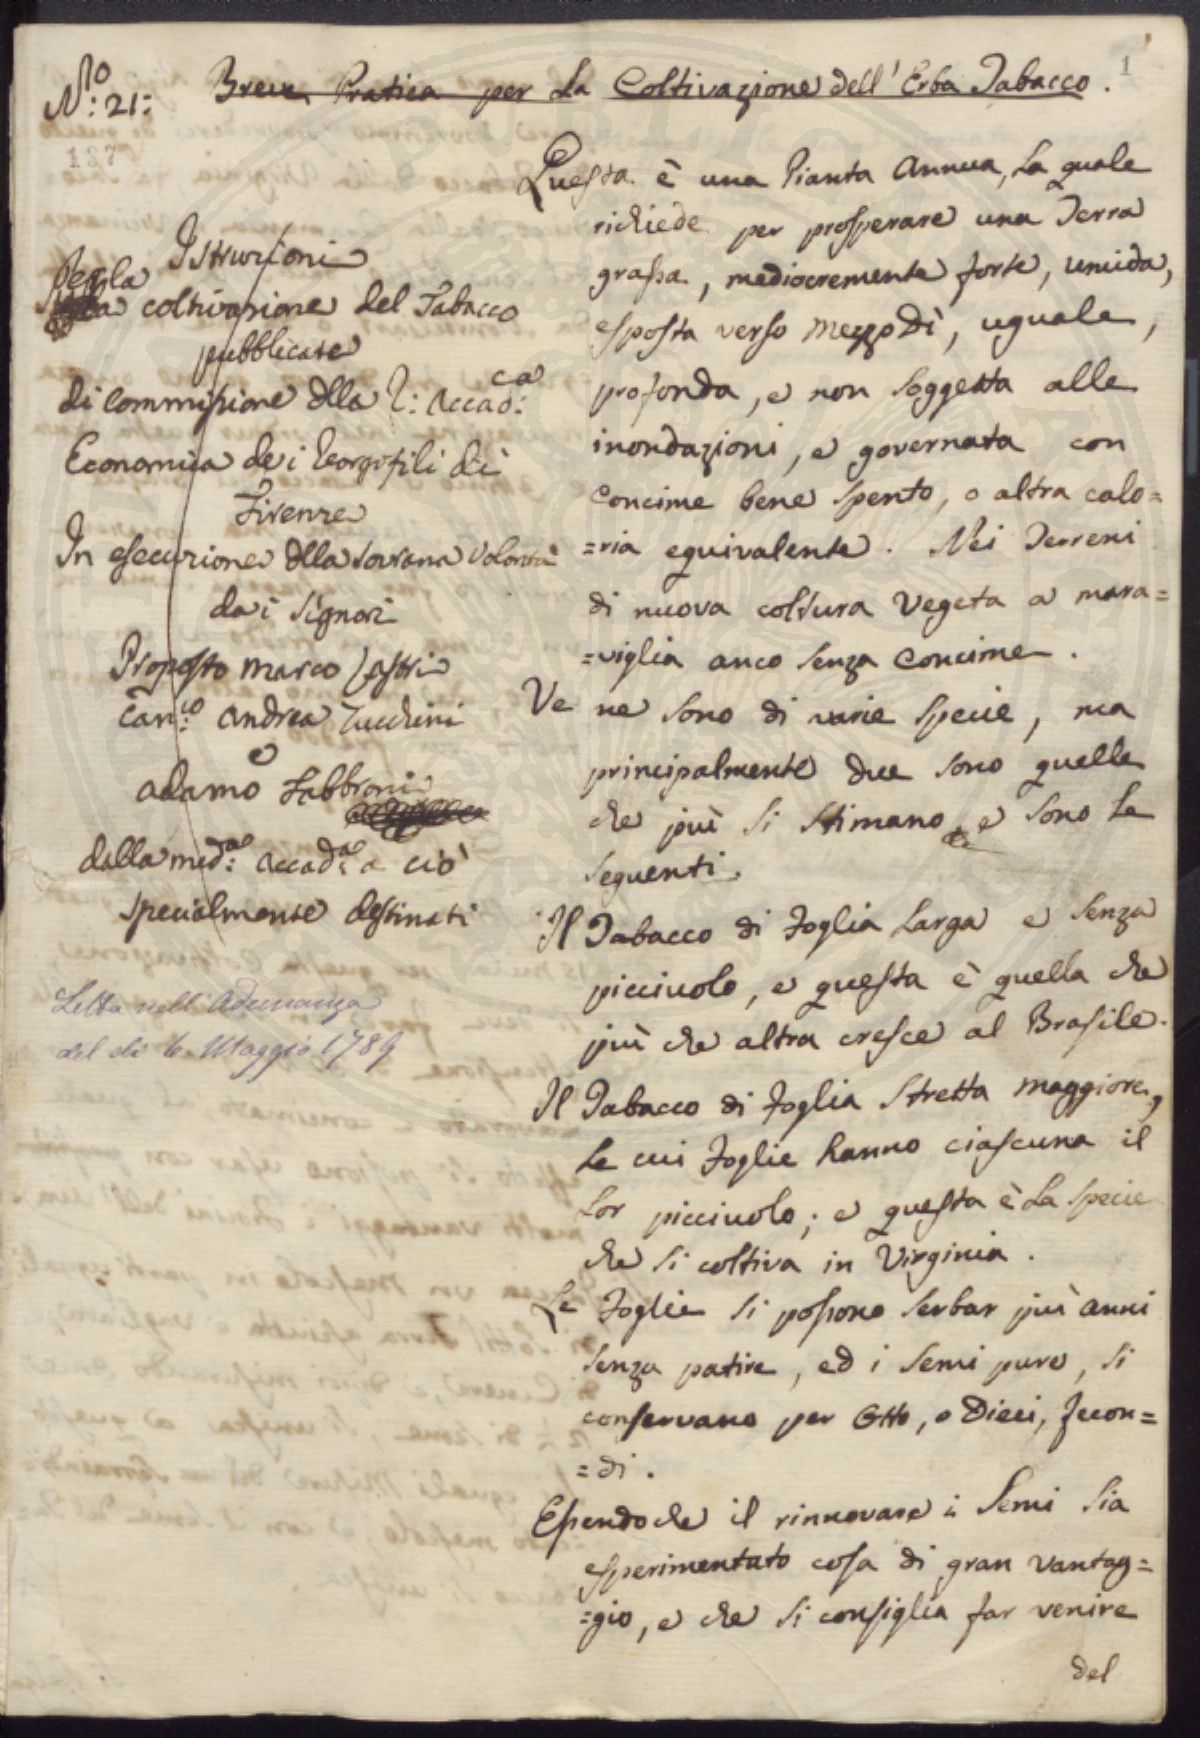 N.o 21:
Breve Pratica per La Coltivazione dell' Erba Tabacco.
1
187
Istruzioni
Per la
coltivazione del Tabacco
pubblicate
di commissione dlla R: Accad:ca
Economica dei Georgofili di
Firenze
In esecuzione dlla Sovrana Volontà
dai Signori
Proposto Marco Lastri
Can:co Andrea Zucchini
e
Adamo Fabbroni
dalla med:a Accad:a a ciò
specialmente destinati
Letta nell' Adunanza
del dì 6. Maggio 1789
Questa è una Pianta Annua, La quale
richiede per prosperare una Terra
grassa, mediocremente forte, umida,
esposta verso Mezzo Dì, uguale,
profonda, e non soggetta alle
inondazioni, e governata con
Concime bene spento, o altra calo=
=ria equivalente. Nei Terreni
di nuova coltura Vegeta a mara=
=viglia anco senza Concime.
Ve ne sono di varie specie, ma
principalmente due sono quelle
che più si stimano, e sono Le
seguenti.
Il Tabacco di Foglia Larga e senza
picciuolo, e questa è quella che
più che altra cresce al Brasile.
Il Tabacco di Foglia Stretta Maggiore,
Le cui Foglie hanno ciascuna il
Lor picciuolo; e questa è La specie
che si coltiva in Virginia.
Le Foglie si possono serbar più anni
senza patire, ed i semi pure, si
conservano per Otto, o Dieci, fecon=
=di.
Essendo che il rinnovare i Semi sia
esperimentato cosa di gran vantag=
=gio, e che si consiglia far venire
del